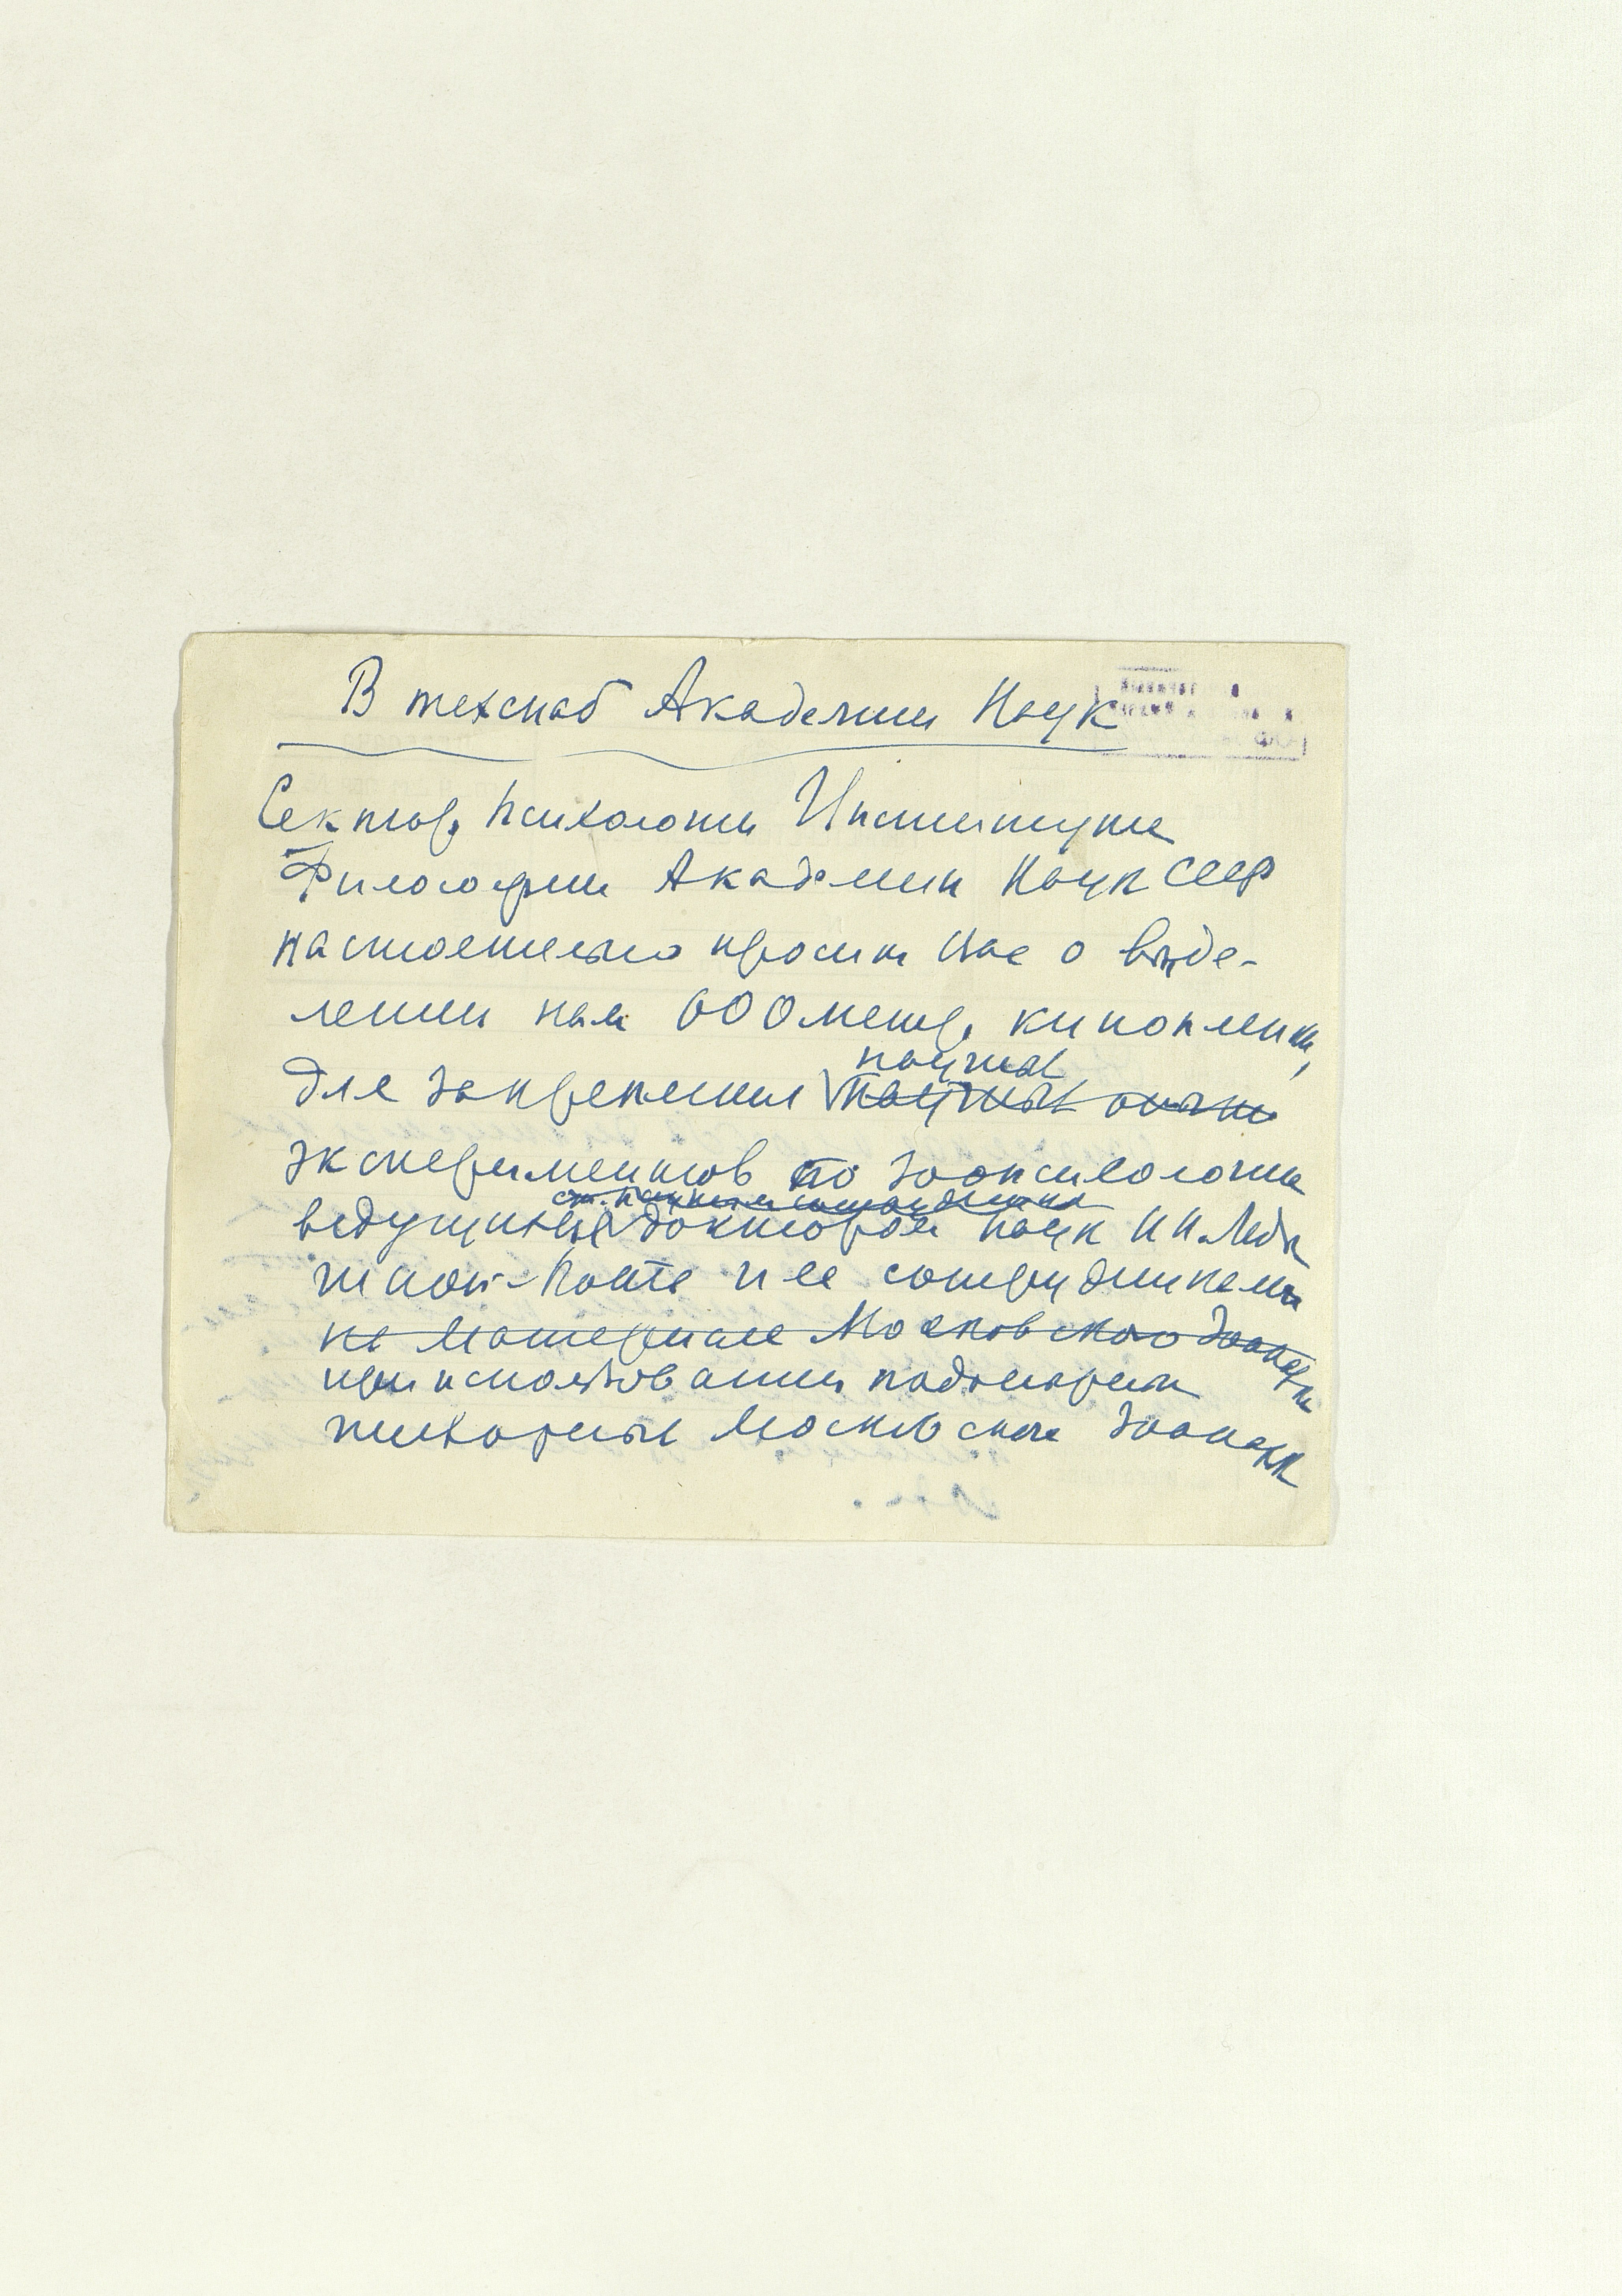 В техснаб Академии Наук
Сектор Психологии Института
Философии Академии Наук СССР
настоятельно просит Вас о выде-
лении нам 600 метр. кинопленки,
для закрепления научных
научных опытов
экспериментов по зоопсихологии
ст. научным сотрудником
ведущихся доктором наук Н Н. Лады
гиной-Котс и ее сотрудниками
на материале Московского Зоопарка
при использовании подопытных
животных Московского Зоопарка